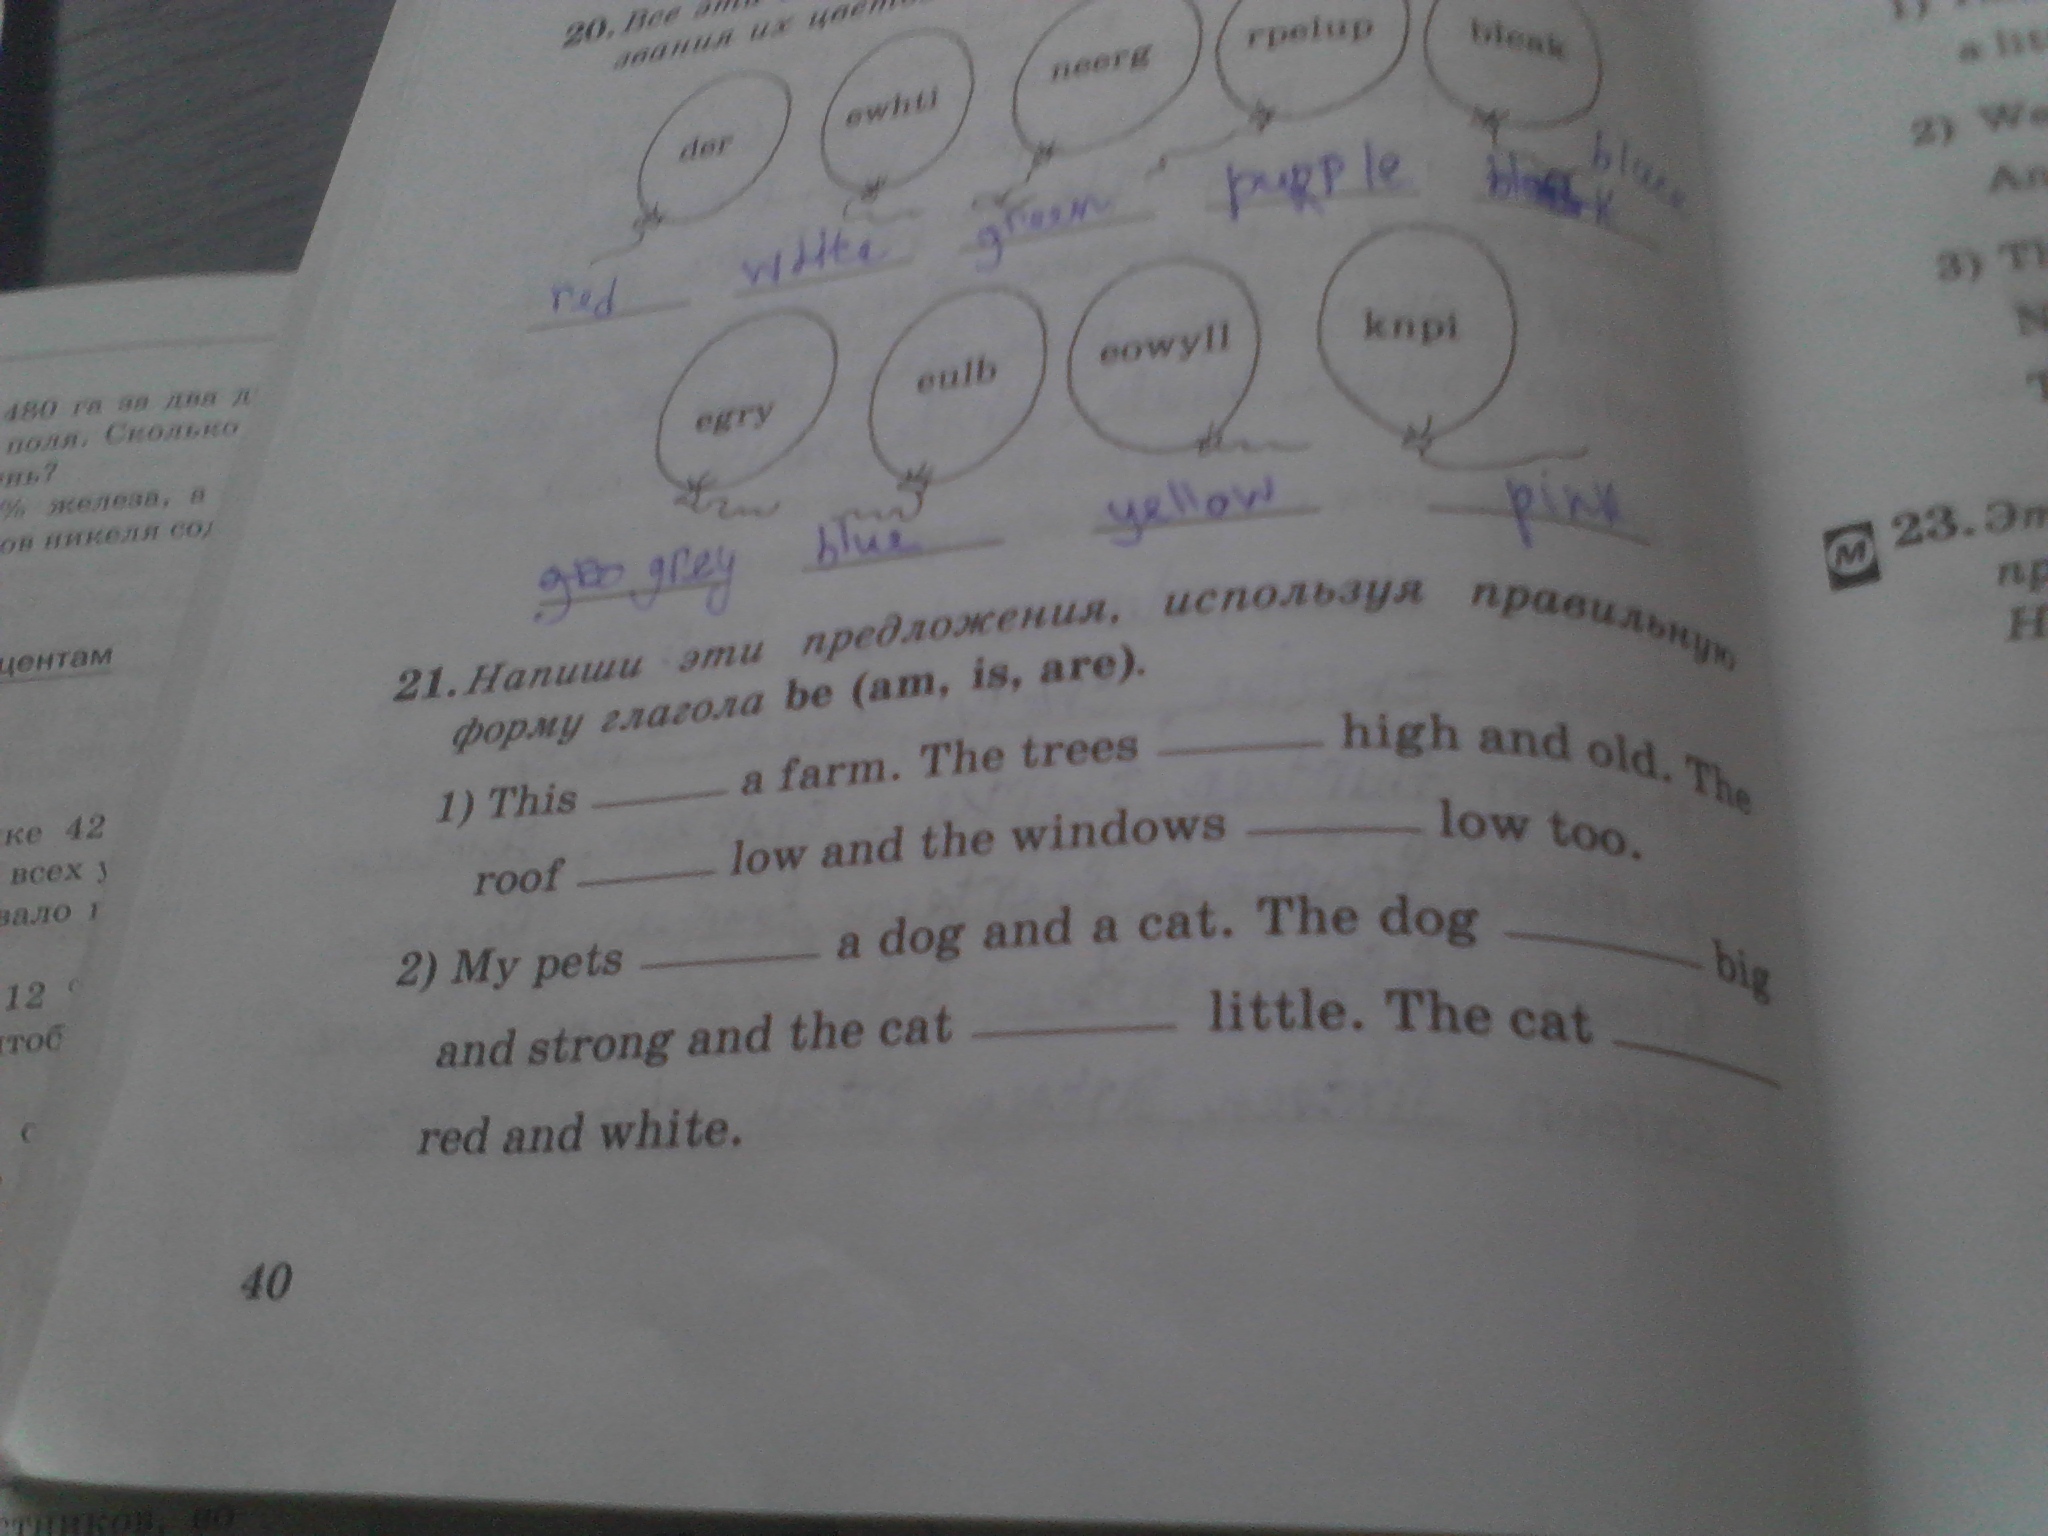 20. Все эти
звания их цвето
der
ewhti
neerg
rpelup
red
white
green
purple
egry
eulb
eowyll
knpi
grey
blue
yellow
pink
21. Напиши эти предложения, используя правильную
форму глагола be (am, is, are).
1) This ______ a farm. The trees ______ high and old. The
roof ______ low and the windows ______ low too.
2) My pets ______ a dog and a cat. The dog ______ big
and strong and the cat ______ little. The cat ______
red and white.
40
480 га за два д
поля. Сколько
нь?
% железа, а
ов никеля сод
центам
ке 42
всех у
вало
12
тоб
с
1)
a lit
2) We
An
3) Th
N
T
М 23. Эт
пр
Н